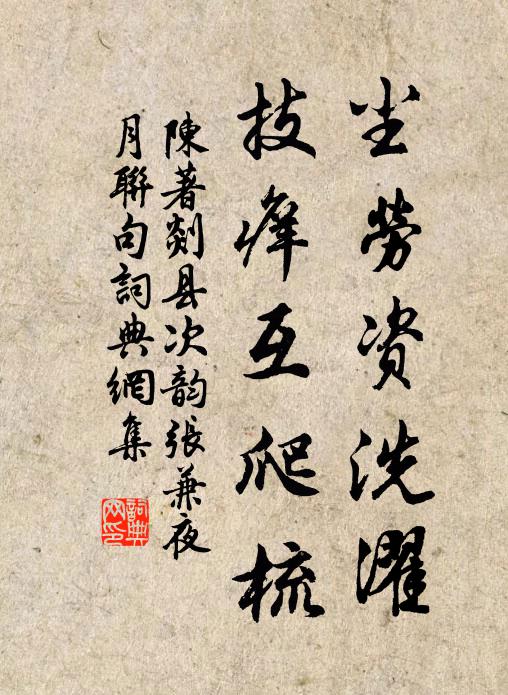 尘劳资洗濯
技痒互爬梳
陳著剡县次韵張兼夜
月聯句詞典網集
詞典
网印